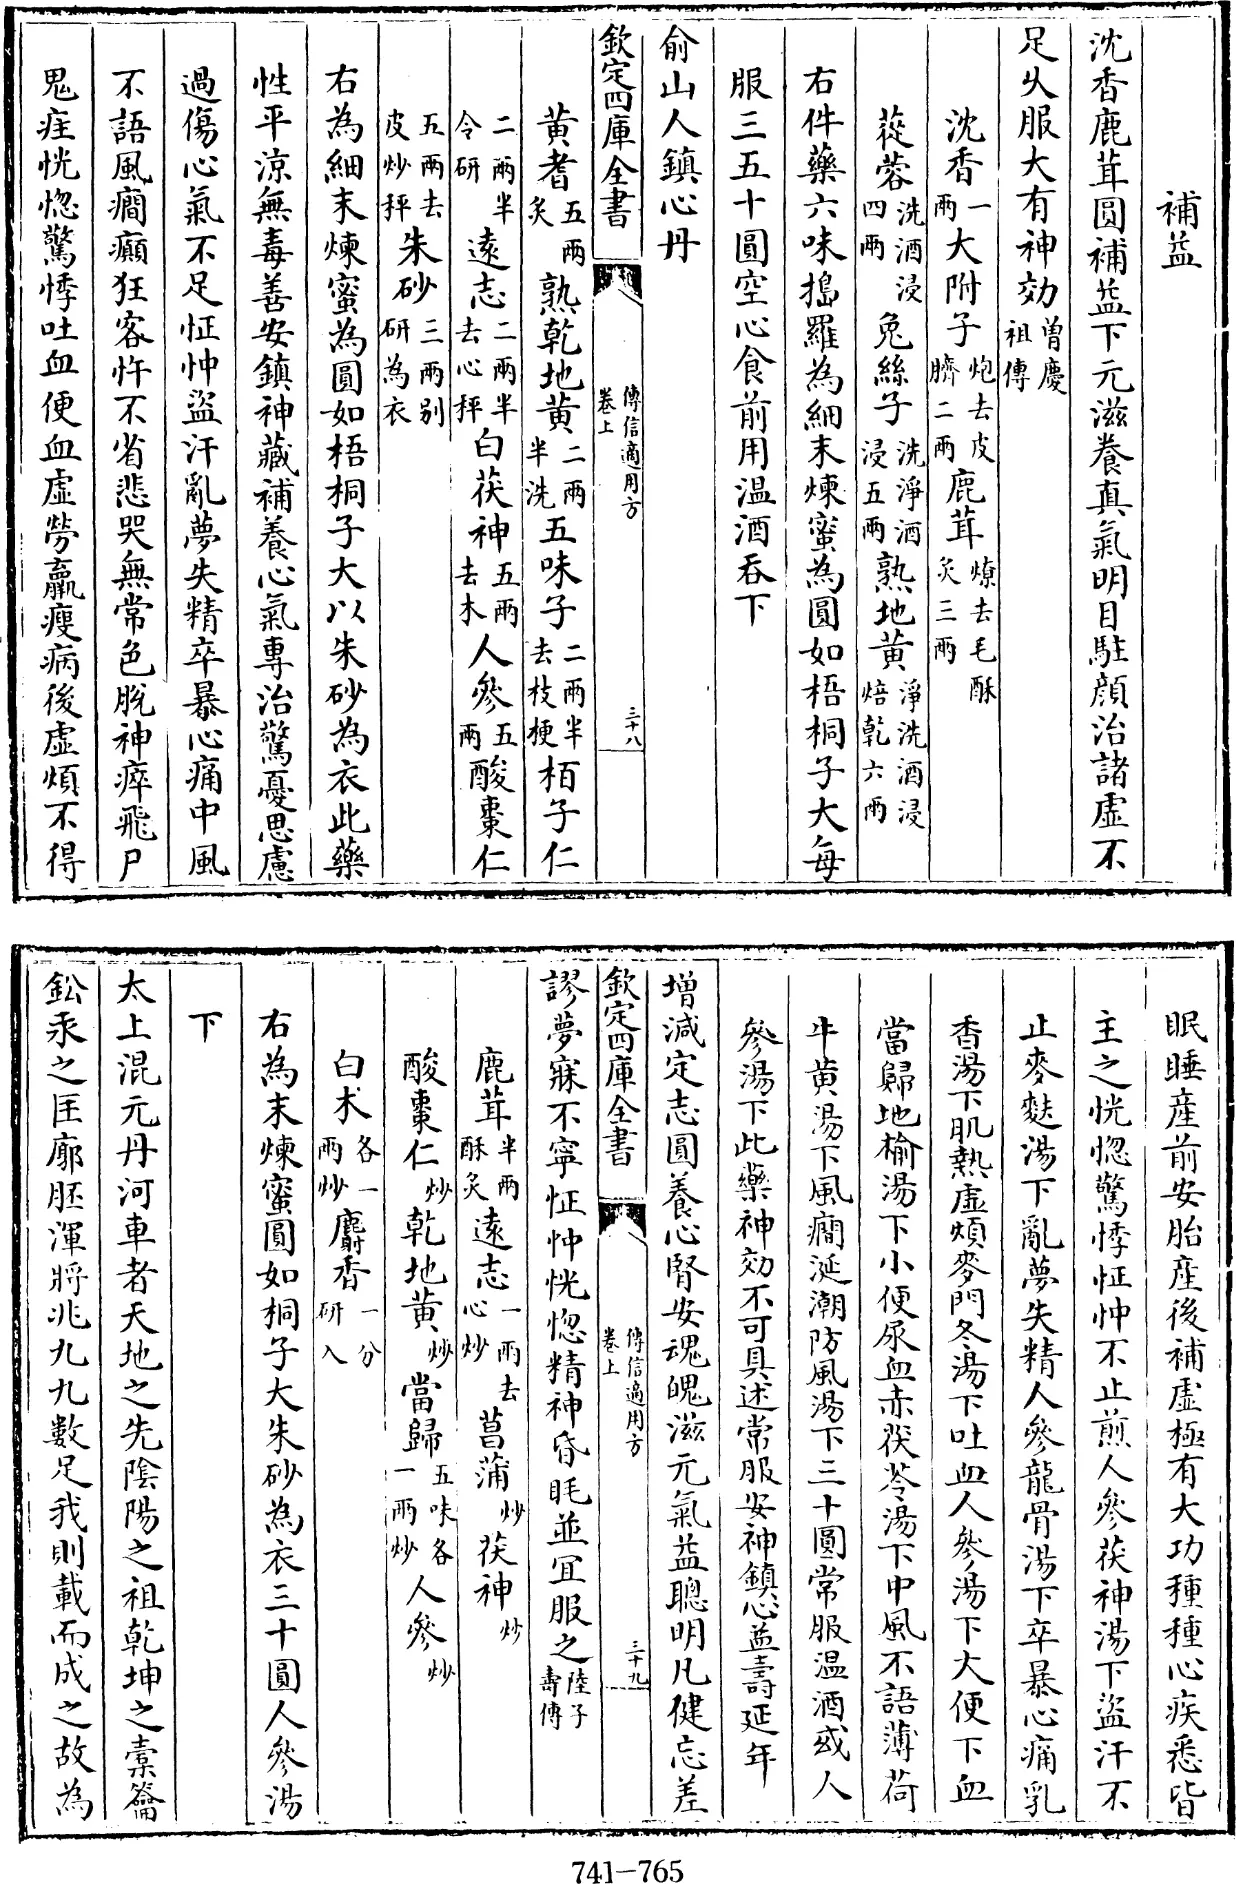 補益
沈香鹿茸圓補益下元滋養真氣明目駐顔治諸虛不
足乆服大有神効曾慶祖傳
沈香一兩大附子炮去皮臍二兩鹿茸燎去毛酥炙三兩
蓯蓉洗酒浸四兩兔絲子洗淨酒浸五兩熟地黄淨洗酒浸焙乾六兩
右件藥六味搗羅為細末煉蜜為圓如梧桐子大每
服三五十圓空心食前用温酒吞下
俞山人鎮心丹
欽定四庫全書
傳信適用方
卷上
三十八
黄耆五兩炙熟乾地黄二兩半洗五味子二兩半去枝梗栢子仁
二兩半令研逺志二兩半去心秤白茯神五兩去木人參五兩酸棗仁
五兩去皮炒秤朱砂三兩别研為衣
右為細末煉蜜為圓如梧桐子大以朱砂為衣此藥
性平涼無毒善安鎮神藏補養心氣專治驚憂思慮
過傷心氣不足怔忡盜汗亂夢失精卒暴心痛中風
不語風癎癲狂客忤不省悲哭無常色脫神瘁飛尸
鬼疰恍惚驚悸吐血便血虛勞羸瘦病後虛煩不得
眠睡産前安胎産後補虛極有大功種種心疾悉皆
主之恍惚驚悸怔忡不止煎人參茯神湯下盜汗不
止麥麩湯下亂夢失精人參龍骨湯下卒暴心痛乳
香湯下肌熱虛煩麥門冬湯下吐血人參湯下大便下血
當歸地榆湯下小便尿血赤茯苓湯下中風不語薄荷
牛黄湯下風癎涎潮防風湯下三十圓常服温酒或人
參湯下此藥神効不可具述常服安神鎮心益壽延年
増減定志圓養心腎安魂魄滋元氣益聰明凡健忘差
欽定四庫全書
傳信適用方
卷上
三十九
謬夢寐不寧怔忡恍惚精神昏眊並宜服之陸子壽傳
鹿茸半兩酥炙逺志一兩去心炒菖蒲炒茯神炒
酸棗仁炒乾地黄炒當歸五味各一兩炒人參炒
白术各一兩炒麝香一分研入
右為末煉蜜圓如桐子大朱砂為衣三十圓人參湯
下
太上混元丹河車者天地之先陰陽之祖乾坤之橐籥
鈆汞之匡廓胚渾將兆九九數足我則載而成之故為
741-765